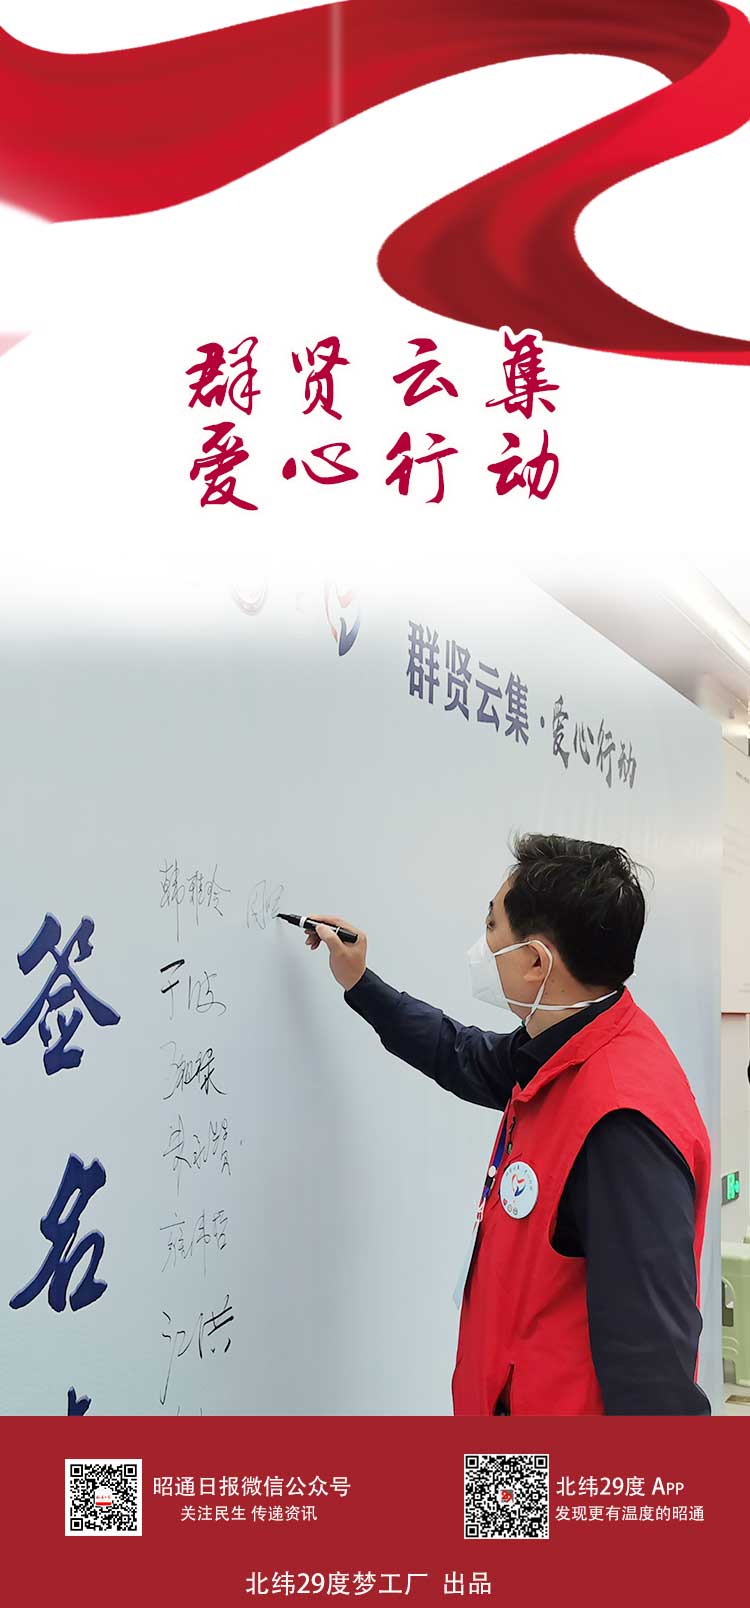 群贤云集
爱心行动
群贤云集·爱心行动
签名
韩雅玲
于波
雍伟哲
江洪
昭通日报微信公众号
关注民生 传递资讯
北纬29度 APP
发现更有温度的昭通
北纬29度梦工厂 出品